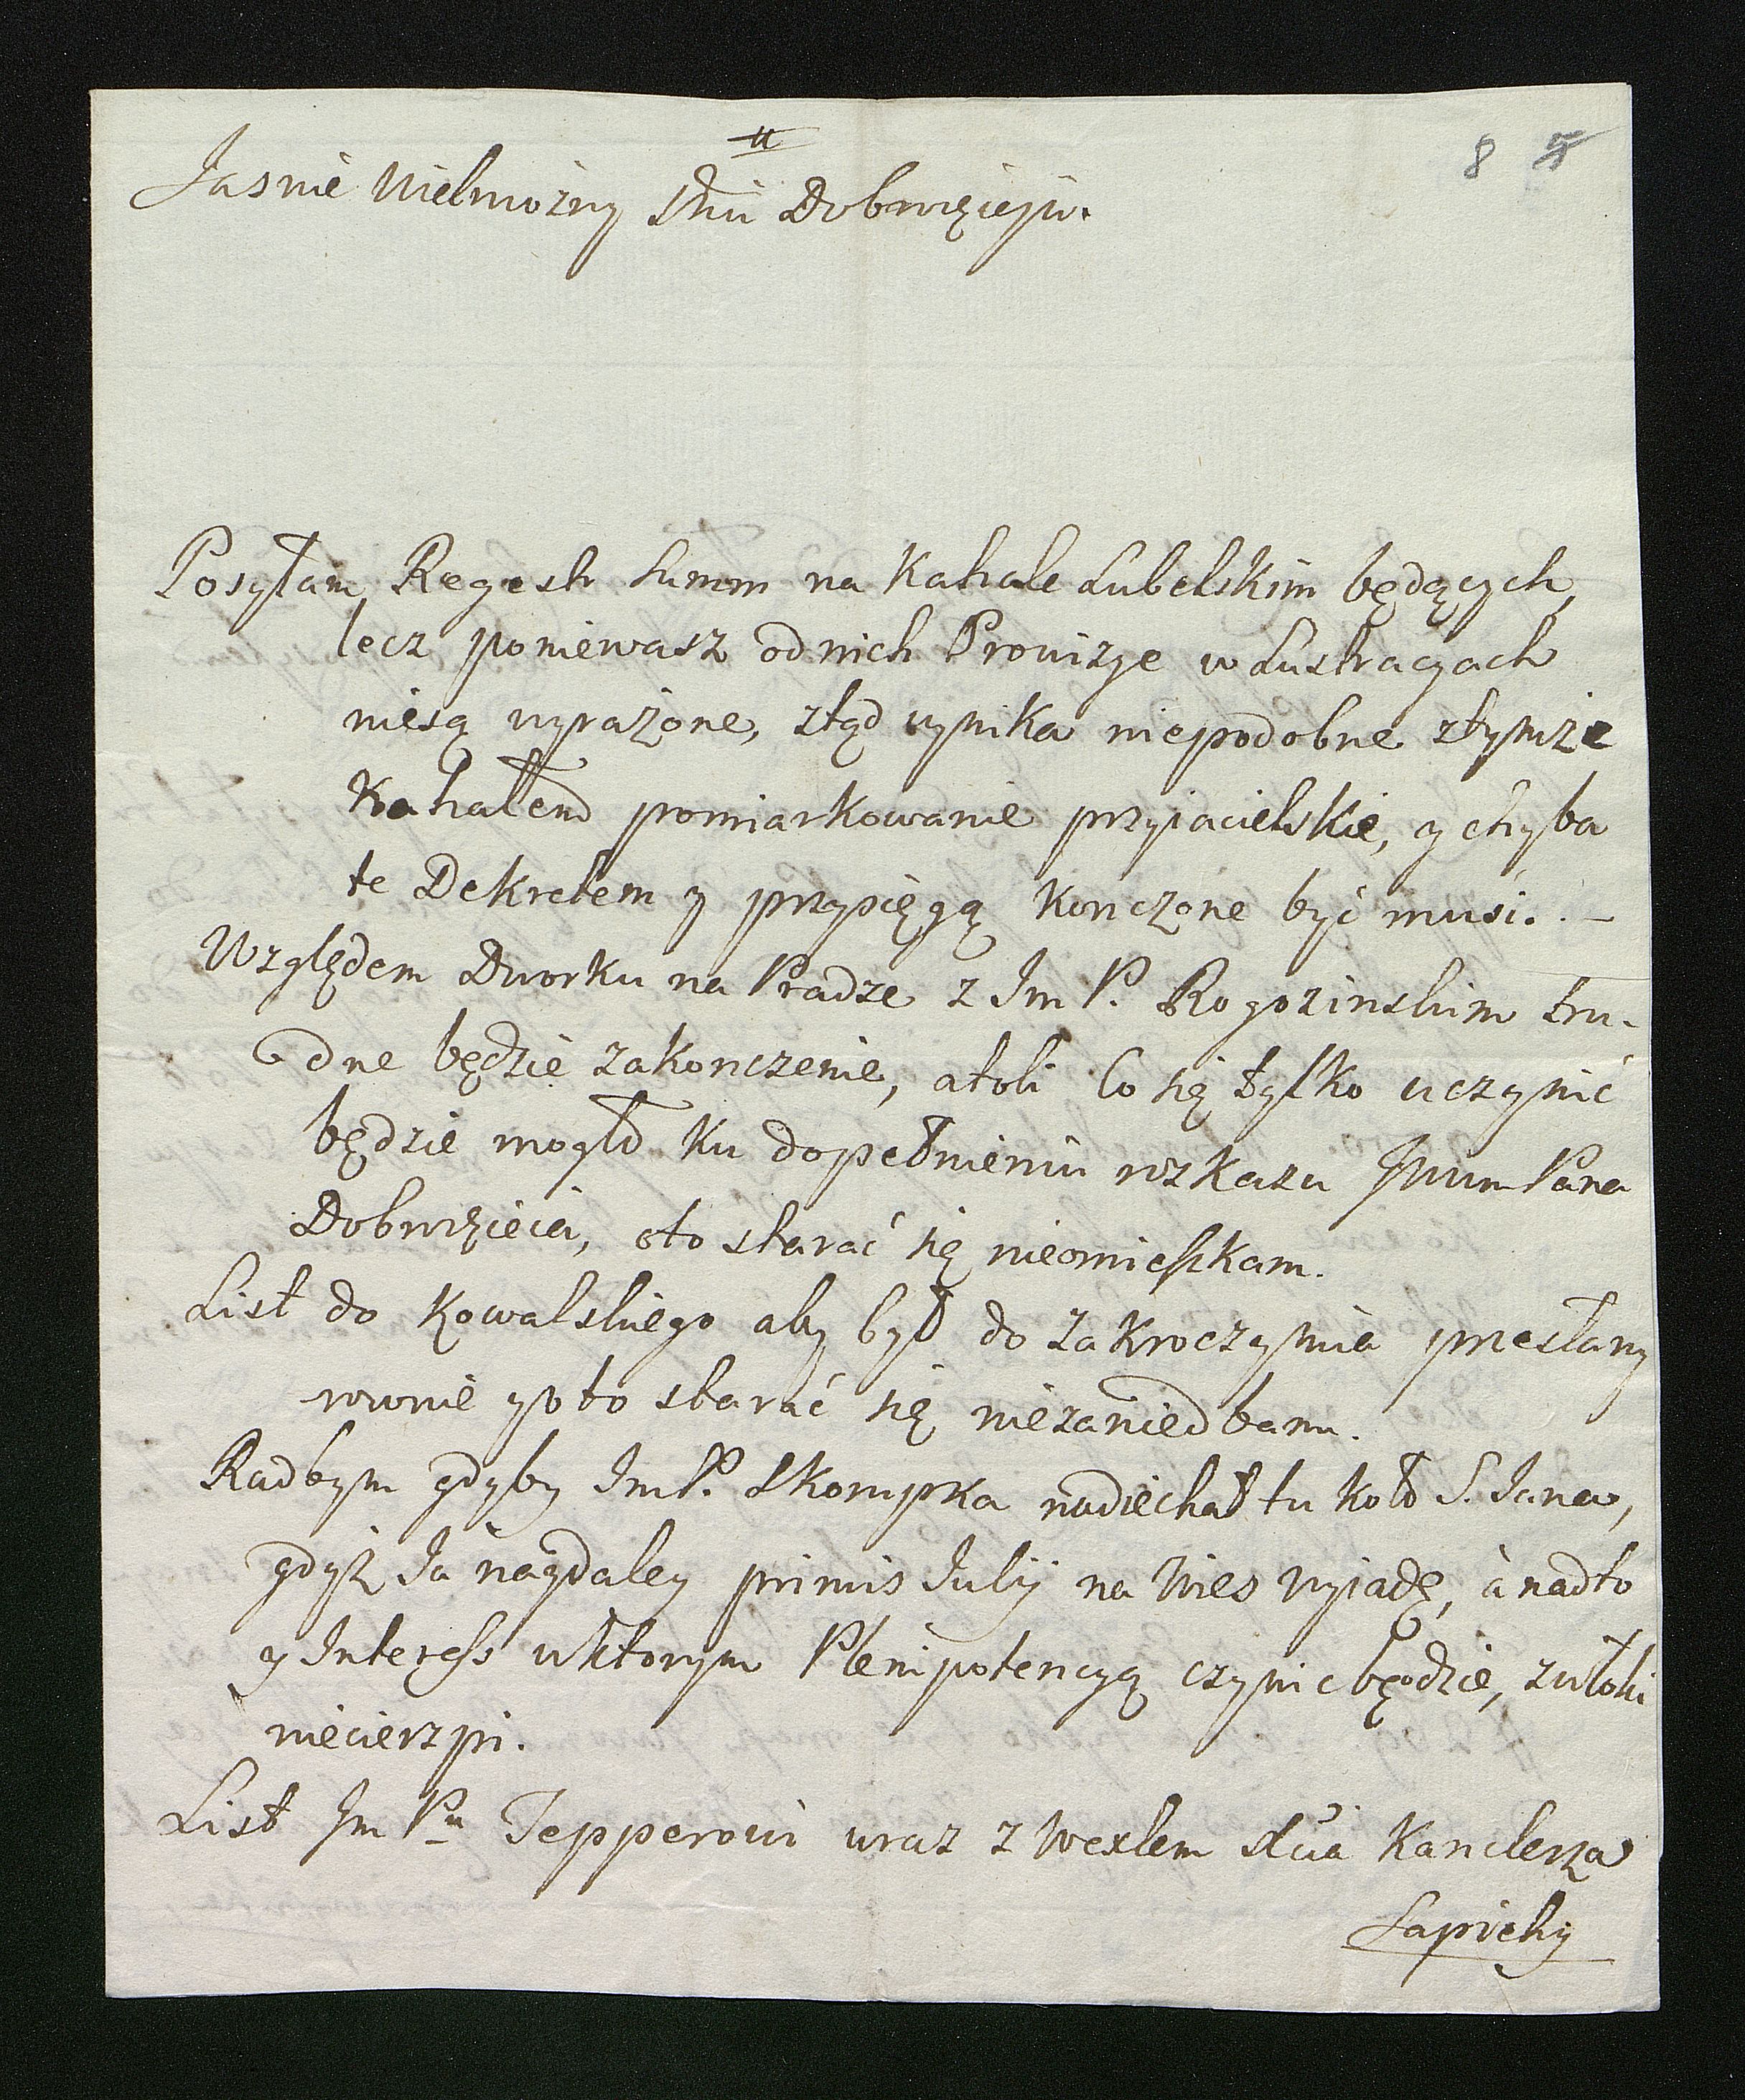 8 5
Jasnie Wielmożny Mci Dobrodzieju.
Posyłam Regestr Summ na Kahale Lubelskim będących,
lecz poniewasz od nich Prowizye w Lustracyach
niesą wyrażone, ztąd wynika niepodobne ztymże
Kahałem pomiarkowanie przyiacielskie, y chyba
te Dekretem y przysięgą konczone być musi. –
Względem Dworku na Pradze z Jm P. Rogozinskim tru-
dne będzie zakonczenie, atoli Co się tylko uczynić
będzie mogło ku dopełnieniu rozkazu JWWm Pana
Dobrodzieia, oto starać się nieomieszkam.
List do Kowalskiego aby był do Zakroczymia przesłany
rownie y oto starać się niezaniedbam.
Radbym gdyby JmP. Skorupka nadiechał tu koło S. Jana,
gdyż Ja naydaley primis Julij na Wies wyiadę, à nadto
y Interess wktorym Plenipotencyą czynic będzie, zwłoki
niecierzpi.
List Jm Pu Tepperowi wraz z Wexlem Xcia Kanclerza
Sapiehy